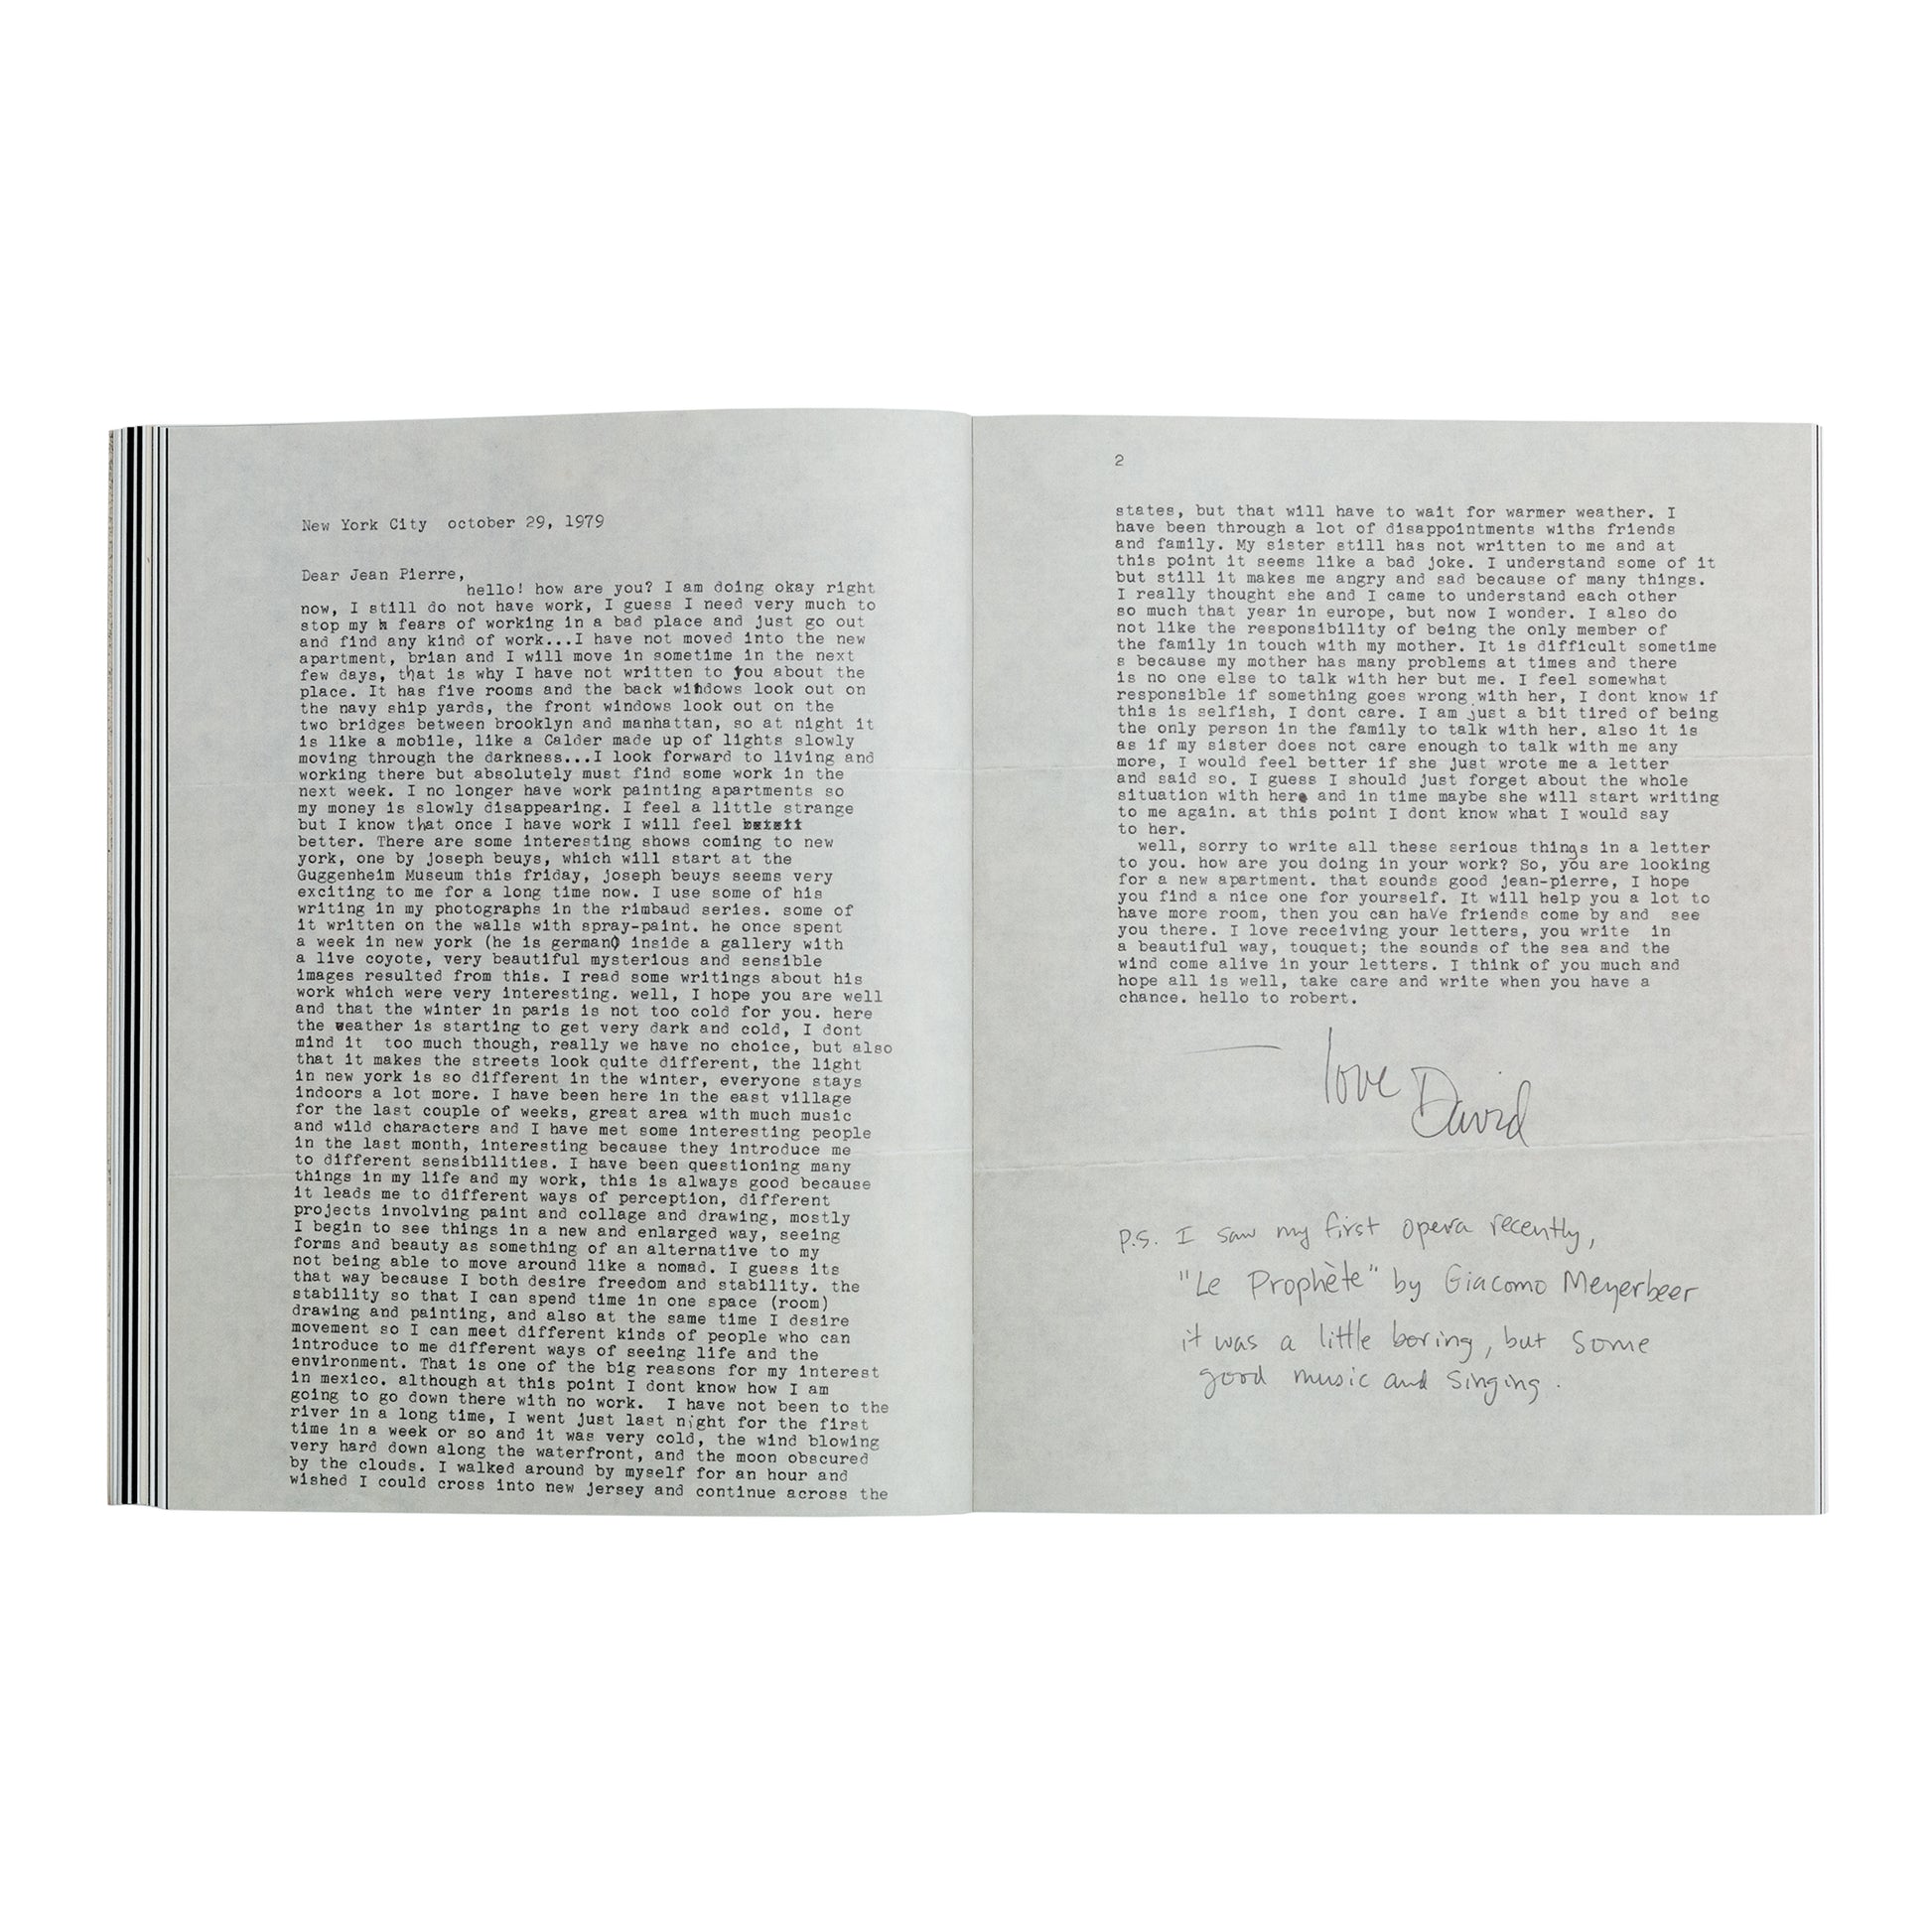 New York City  october 29, 1979
Dear Jean Pierre,
hello! how are you? I am doing okay right
now, I still do not have work, I guess I need very much to
stop my fears of working in a bad place and just go out
and find any kind of work...I have not moved into the new
apartment, brian and I will move in sometime in the next
few days, that is why I have not written to you about the
place. It has five rooms and the back windows look out on
the navy ship yards, the front windows look out on the
two bridges between brooklyn and manhattan, so at night it
is like a mobile, like a Calder made up of lights slowly
moving through the darkness...I look forward to living and
working there but absolutely must find some work in the
next week. I no longer have work painting apartments so
my money is slowly disappearing. I feel a little strange
but I know that once I have work I will feel
better. There are some interesting shows coming to new
york, one by joseph beuys, which will start at the
Guggenheim Museum this friday, joseph beuys seems very
exciting to me for a long time now. I use some of his
writing in my photographs in the rimbaud series. some of
it written on the walls with spray-paint. he once spent
a week in new york (he is german) inside a gallery with
a live coyote, very beautiful mysterious and sensible
images resulted from this. I read some writings about his
work which were very interesting. well, I hope you are well
and that the winter in paris is not too cold for you. here
the weather is starting to get very dark and cold, I dont
mind it  too much though, really we have no choice, but also
that it makes the streets look quite different, the light
in new york is so different in the winter, everyone stays
indoors a lot more. I have been here in the east village
for the last couple of weeks, great area with much music
and wild characters and I have met some interesting people
in the last month, interesting because they introduce me
to different sensibilities. I have been questioning many
things in my life and my work, this is always good because
it leads me to different ways of perception, different
projects involving paint and collage and drawing, mostly
I begin to see things in a new and enlarged way, seeing
forms and beauty as something of an alternative to my
not being able to move around like a nomad. I guess its
that way because I both desire freedom and stability. the
stability so that I can spend time in one space (room)
drawing and painting, and also at the same time I desire
movement so I can meet different kinds of people who can
introduce to me different ways of seeing life and the
environment. That is one of the big reasons for my interest
in mexico. although at this point I dont know how I am
going to go down there with no work.  I have not been to the
river in a long time, I went just last night for the first
time in a week or so and it was very cold, the wind blowing
very hard down along the waterfront, and the moon obscured
by the clouds. I walked around by myself for an hour and
wished I could cross into new jersey and continue across the
2
states, but that will have to wait for warmer weather. I
have been through a lot of disappointments withs friends
and family. My sister still has not written to me and at
this point it seems like a bad joke. I understand some of it
but still it makes me angry and sad because of many things.
I really thought she and I came to understand each other
so much that year in europe, but now I wonder. I also do
not like the responsibility of being the only member of
the family in touch with my mother. It is difficult sometime
s because my mother has many problems at times and there
is no one else to talk with her but me. I feel somewhat
responsible if something goes wrong with her, I dont know if
this is selfish, I dont care. I am just a bit tired of being
the only person in the family to talk with her. also it is
as if my sister does not care enough to talk with me any
more, I would feel better if she just wrote me a letter
and said so. I guess I should just forget about the whole
situation with here and in time maybe she will start writing
to me again. at this point I dont know what I would say
to her.
well, sorry to write all these serious things in a letter
to you. how are you doing in your work? So, you are looking
for a new apartment. that sounds good jean-pierre, I hope
you find a nice one for yourself. It will help you a lot to
have more room, then you can have friends come by and  see
you there. I love receiving your letters, you write  in
a beautiful way, touquet; the sounds of the sea and the
wind come alive in your letters. I think of you much and
hope all is well, take care and write when you have a
chance. hello to robert.
— love David
P.S. I saw my first opera recently,
"Le Prophète" by Giacomo Meyerbeer
it was a little boring, but some
good music and singing.